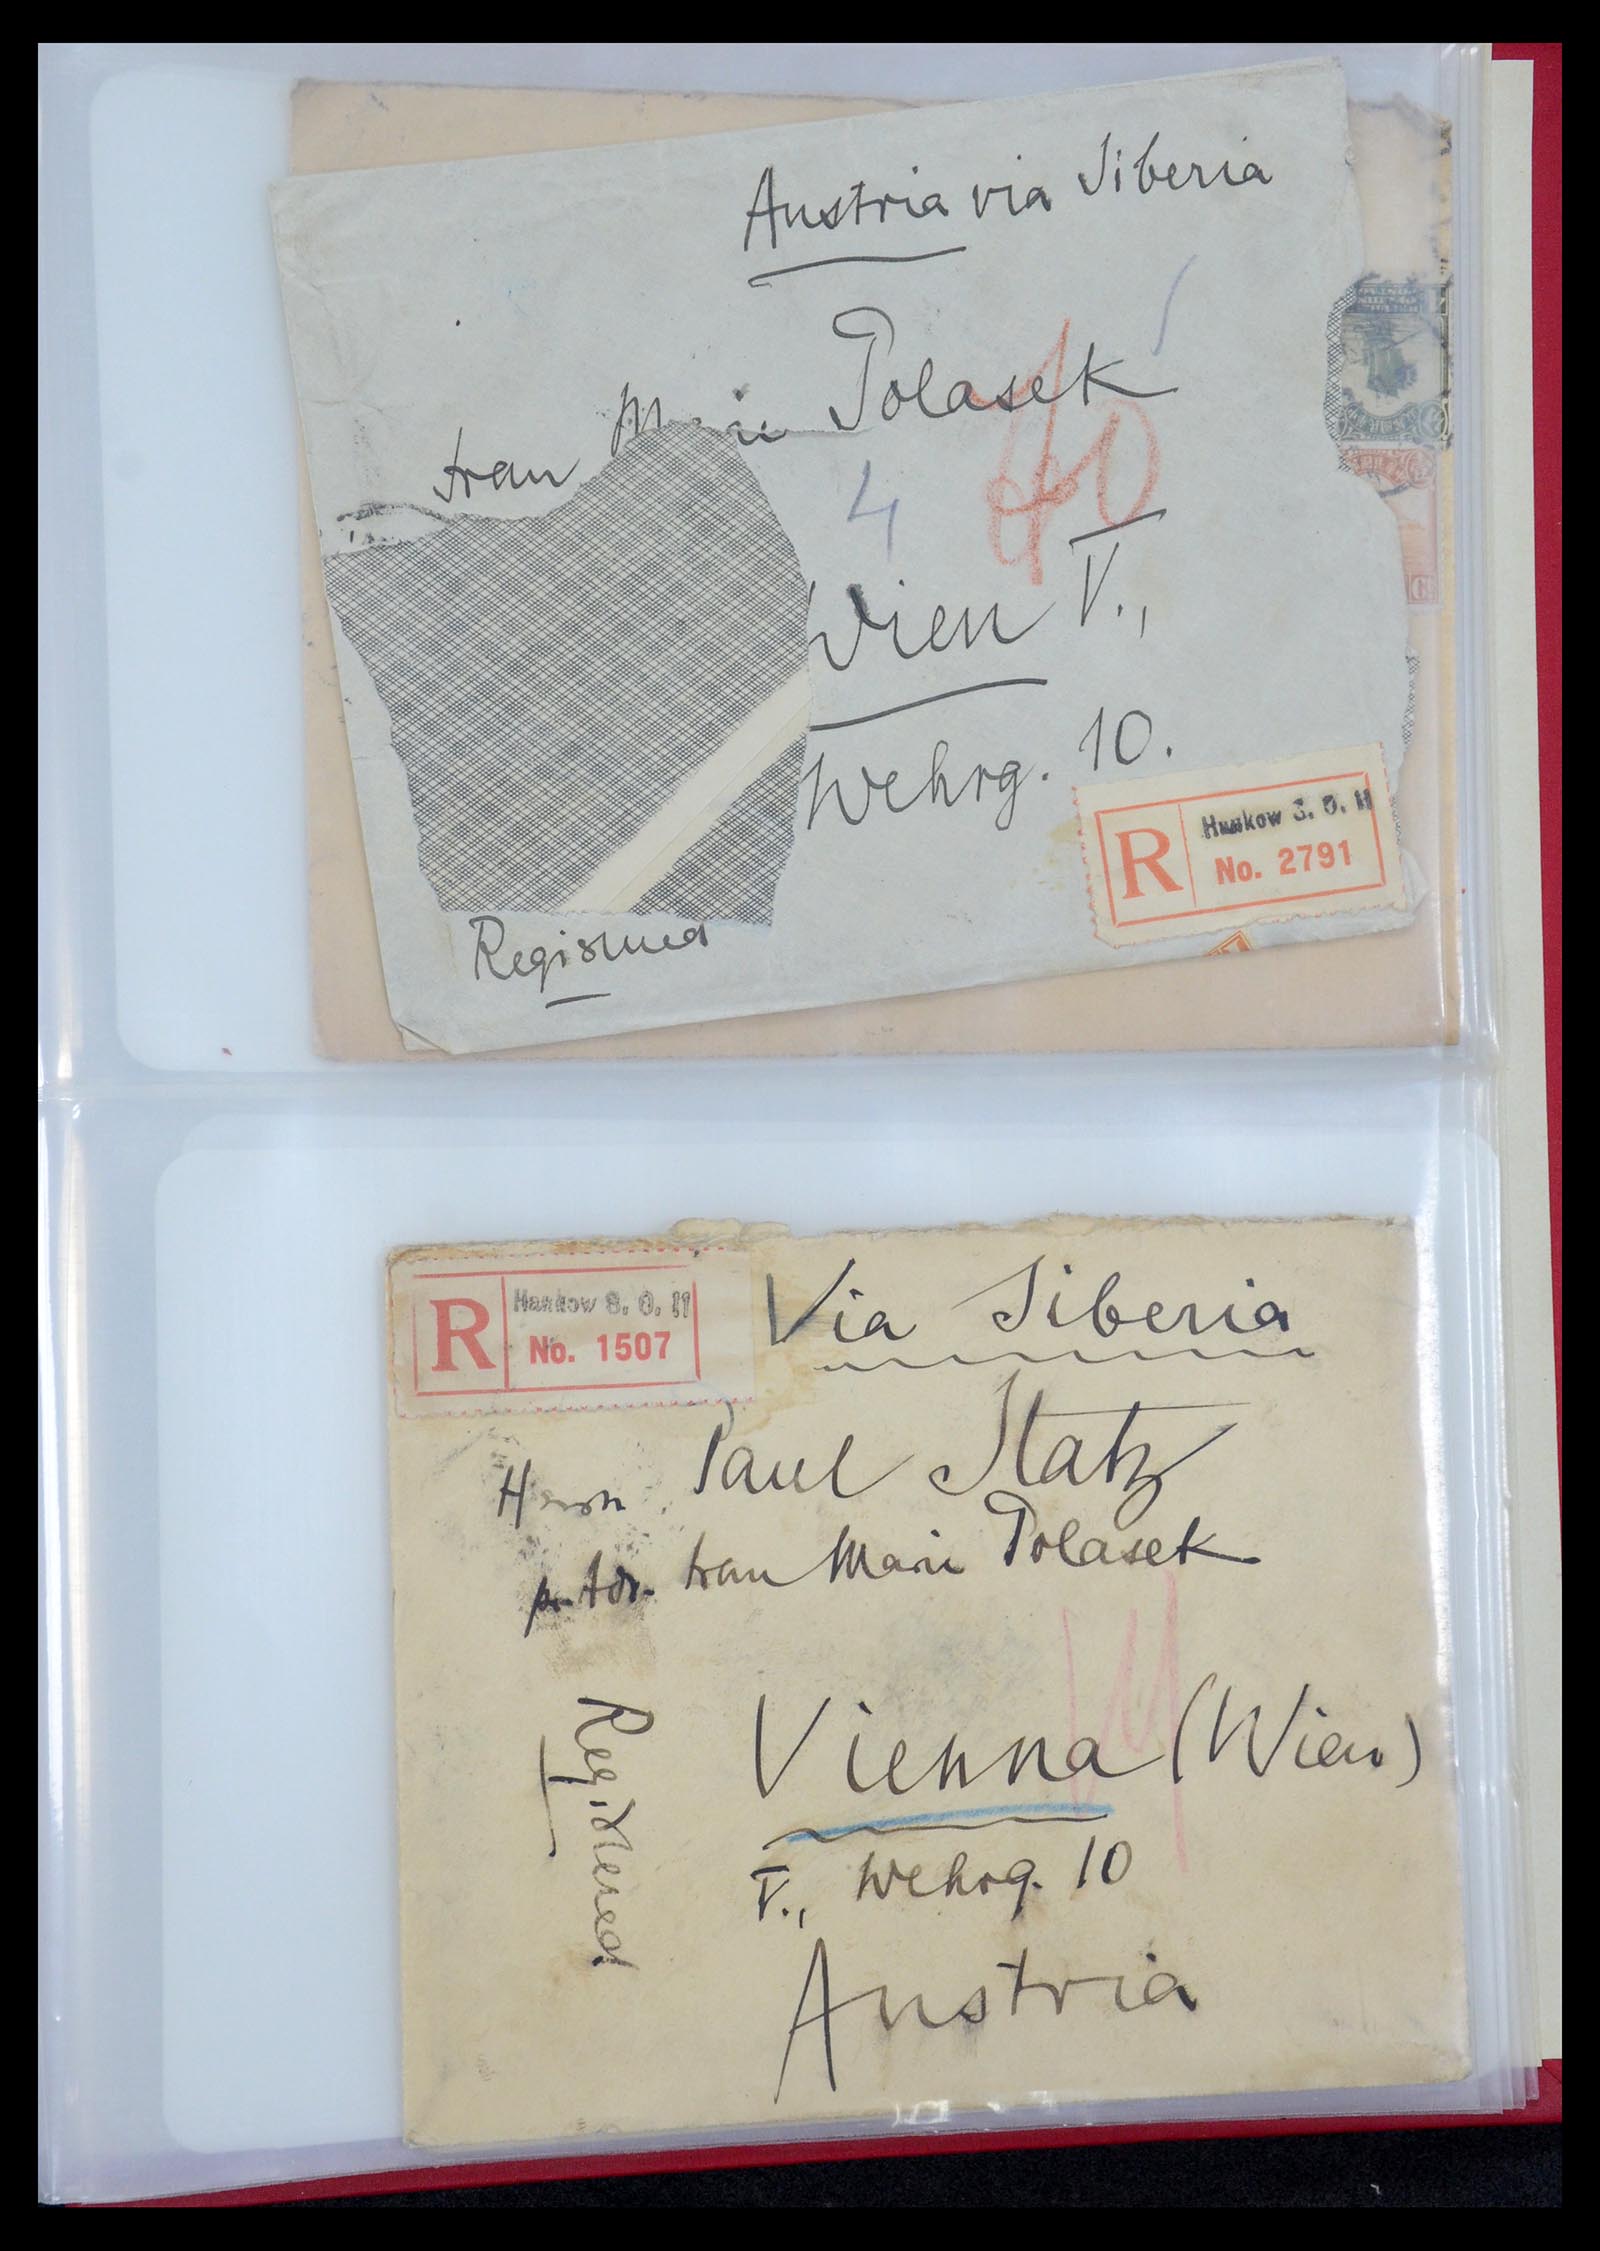 Austria via Siberia
Frau Marie Polasek
40
4
Wien V.,
Wehrg. 10.
R
Hankow S. O. 11
No. 2791
Registered
R
Hankow S. O. 11
No. 1507
Via Siberia
Herrn Paul Statz
pr. Adr. Frau Marie Polasek
Registered
Vienna (Wien)
V., Wehrg. 10
Austria